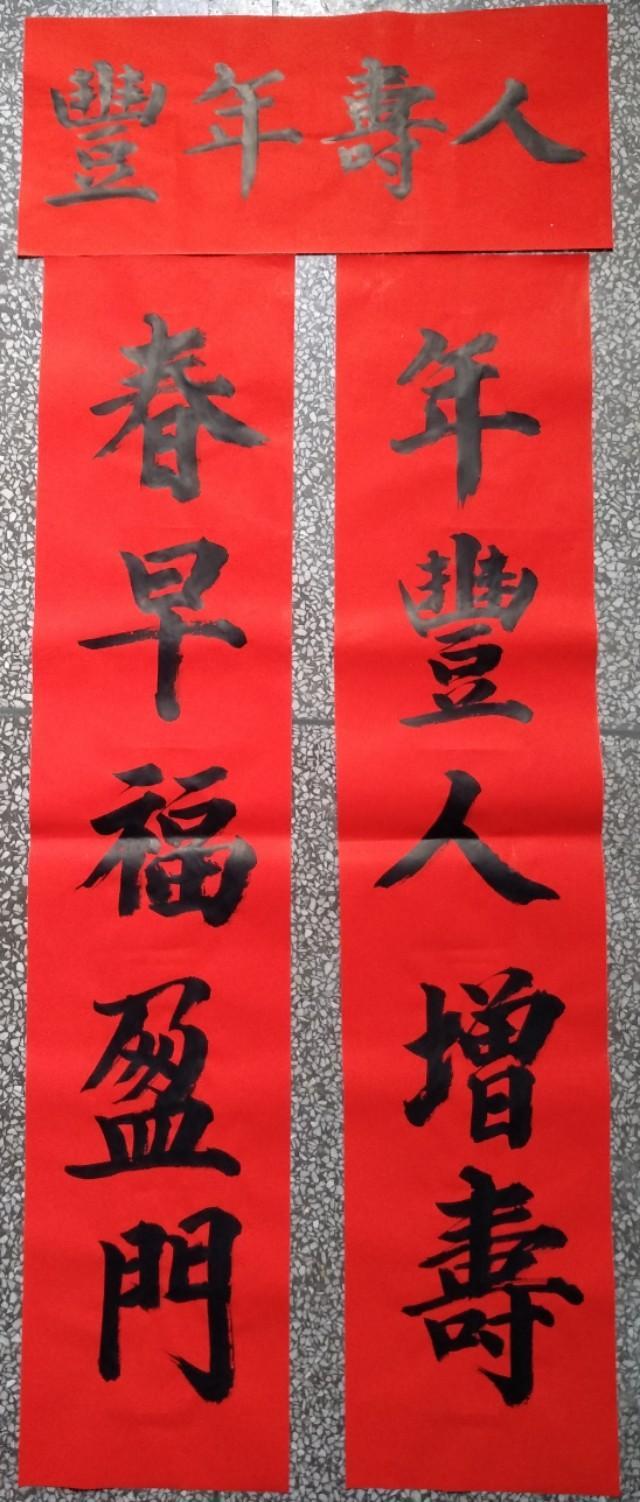 人壽年豐
年豐人增壽
春早福盈門